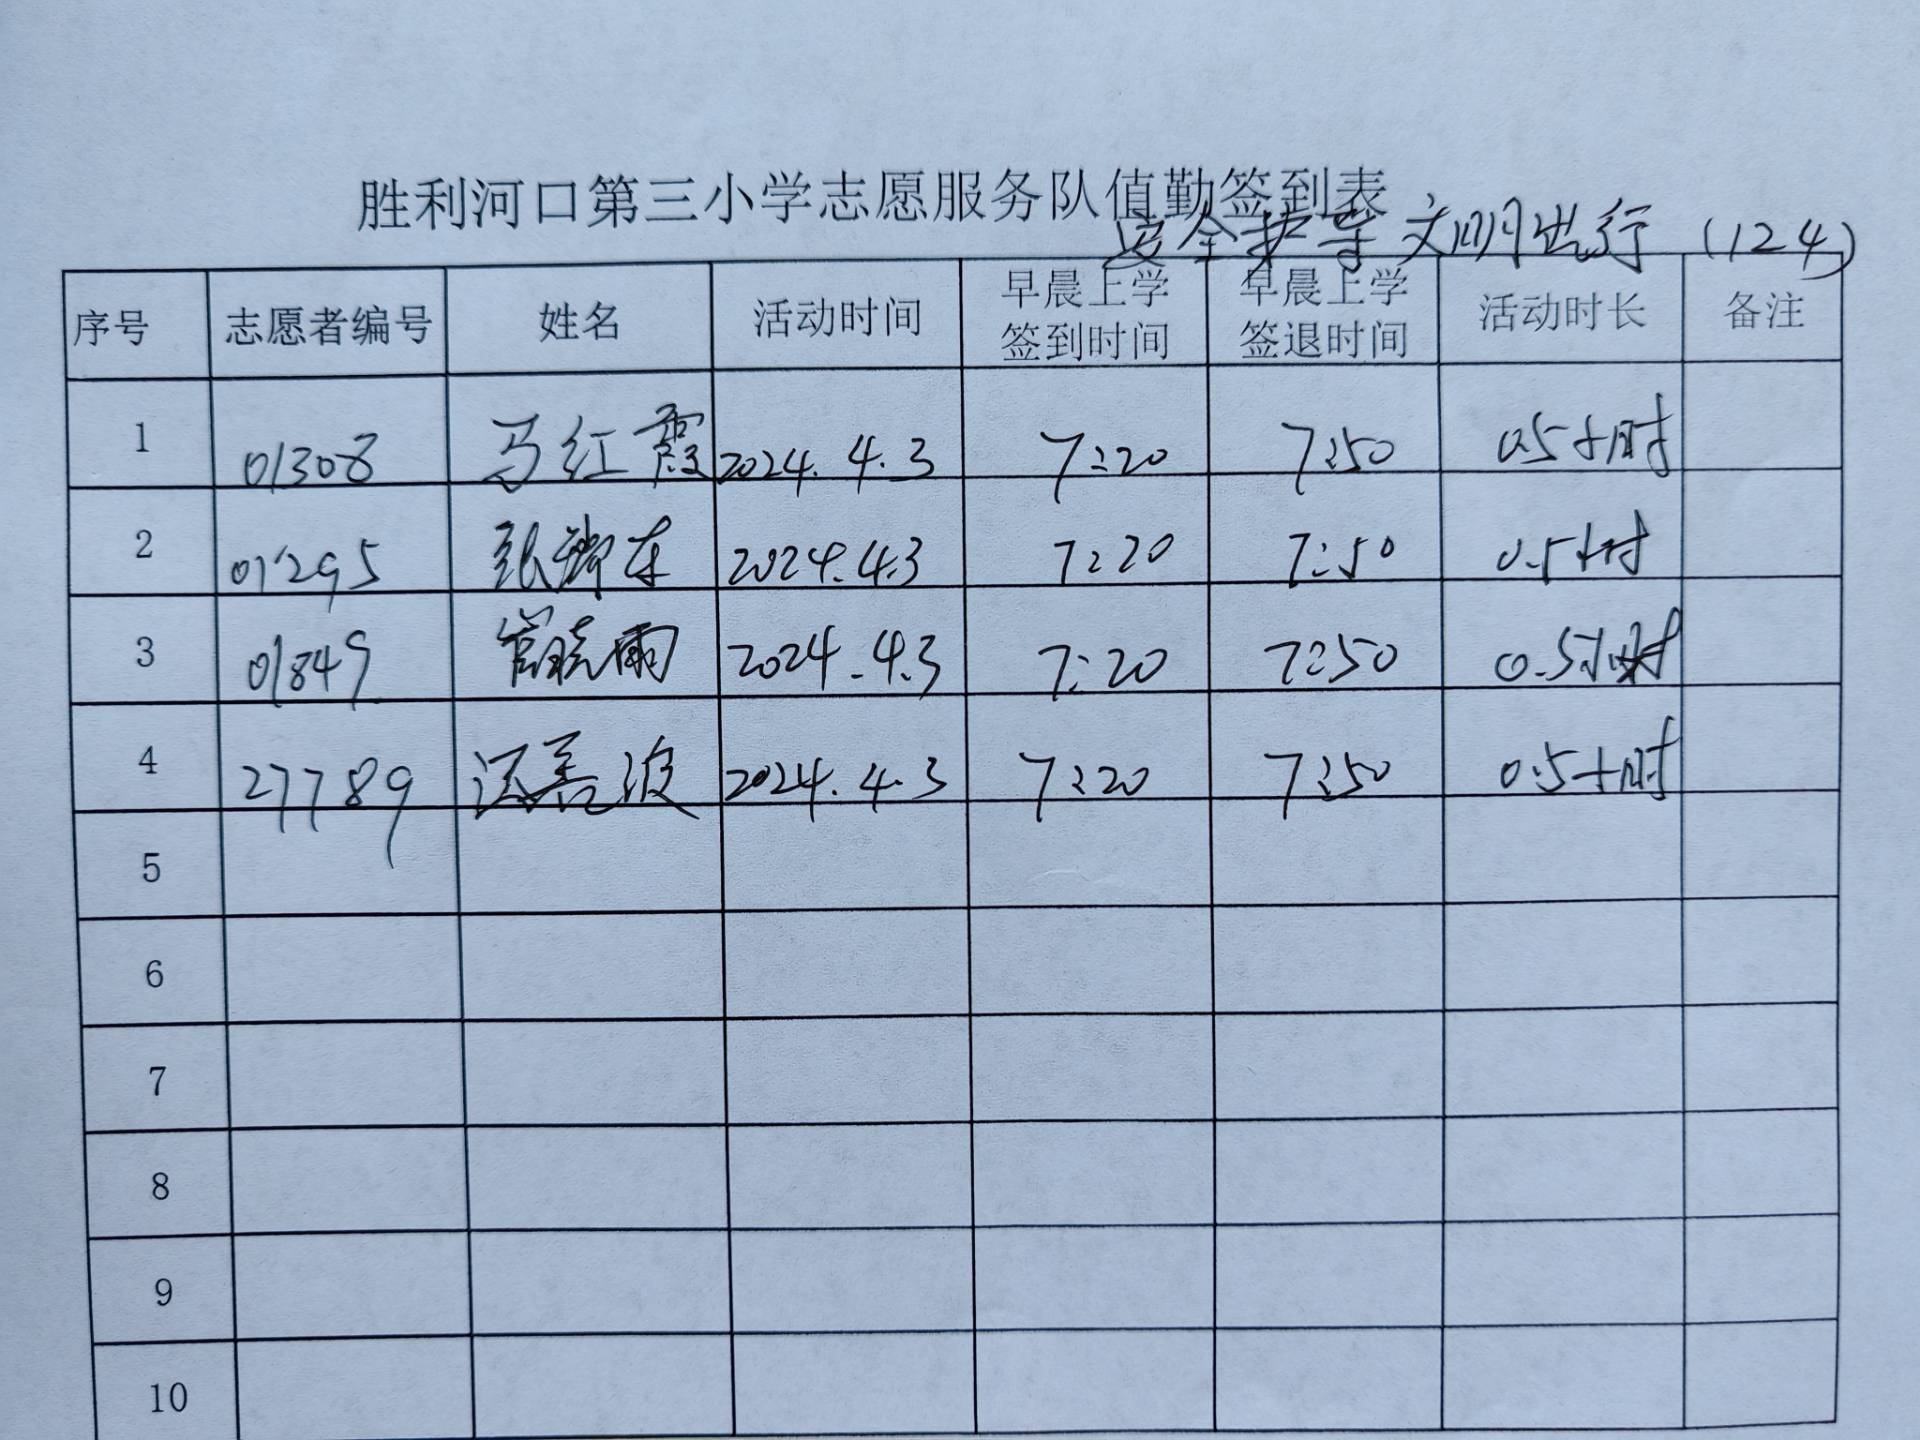 胜利河口第三小学志愿服务队值勤签到表
安全护学 文明出行 (124)
序号 志愿者编号 姓名 活动时间 早晨上学签到时间 早晨上学签退时间 活动时长 备注
1 01308 马红霞 2024.4.3 7:20 7:50 0.5小时
2 01295 张 2024.4.3 7:20 7:50 0.5小时
3 01849 崔晓雨 2024.4.3 7:20 7:50 0.5小时
4 27789 波 2024.4.3 7:20 7:50 0.5小时
5
6
7
8
9
10